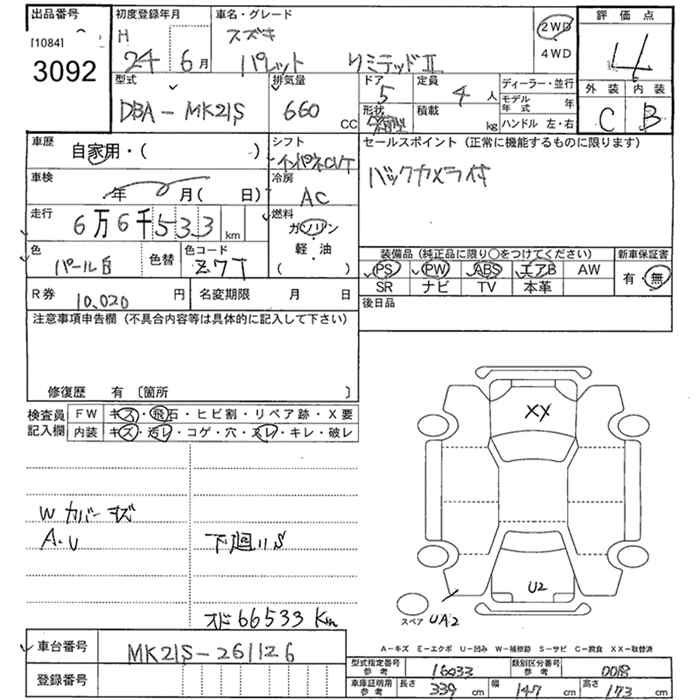 出品番号
[1084]
3092
初度登録年月
H
24 6月
車名・グレード
スズキ
パレット リミテッドⅡ
2WD
4WD
評価点
4
外装 内装
C B
型式
DBA-MK21S
排気量
660
CC
ドア
5
形状
定員
4 人
積載
kg
ディーラー・並行
モデル年式 年
ハンドル 左・右
車歴
自家用・( )
シフト
インパネCVT
セールスポイント (正常に機能するものに限ります)
バックカメラ付
車検
年 月( 日)
冷房
AC
走行
6万6千533
km
燃料
ガソリン
軽・油
( )
色
パール白
色替
色コード
Z7T
装備品 (純正品に限り〇をつけてください)
新車保証書
PS PW ABS エアB AW
SR ナビ TV 本革
有・無
R券
10,020 円
名変期限 月 日
後日品
注意事項申告欄 (不具合内容等は具体的に記入して下さい)
修復歴 有 〔箇所 〕
検査員
記入欄
FW キズ・飛石・ヒビ割・リペア跡・X要
内装 キズ・汚レ・コゲ・穴・スレ・キレ・破レ
Wカバーキズ
A・U
下廻りS
スド66533Km
XX
U2
スペア UA2
A-キズ E-エクボ U-凹み W-補修跡 S-サビ C-腐食 XX-取替済
車台番号
MK21S-261126
登録番号
型式指定番号
参考
16033
類別区分番号
参考
0018
車庫証明用
参考
長さ
339 cm
幅
147 cm
高さ
173 cm